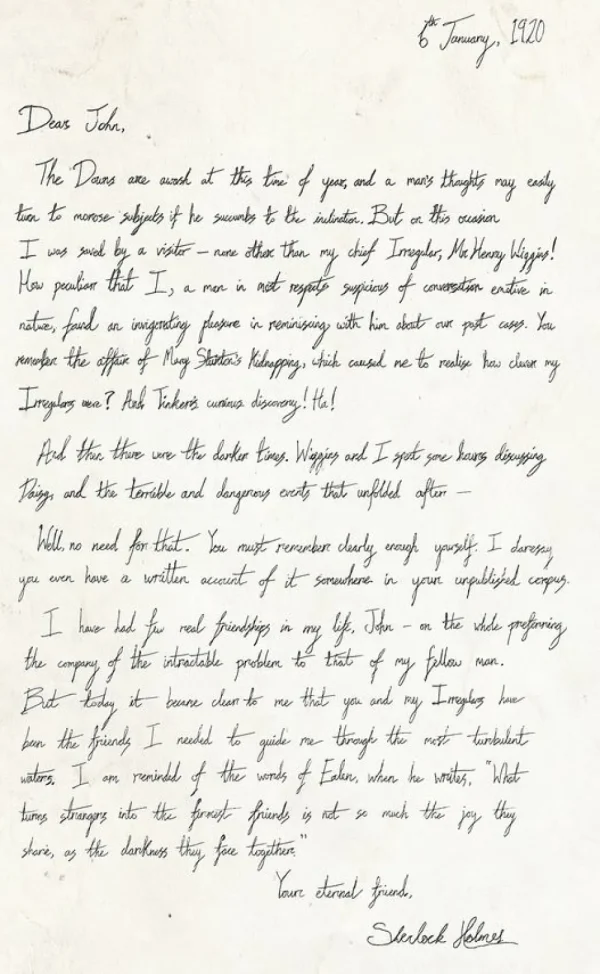 6th January, 1920
Dear John,
The Downs are awash at this time of year, and a man's thoughts may easily
turn to morose subjects if he succumbs to the inclination. But on this occasion
I was saved by a visitor – none other than my chief Irregular, Mr. Henry Wiggins!
How peculiar that I, a man in most respects suspicious of conversation emotive in
nature, found an invigorating pleasure in reminiscing with him about our past cases. You
remember the affair of Mary Stanton's Kidnapping, which caused me to realise how clever my
Irregulars were? And Tinker's curious discovery! Ha!
And then there were the darker times. Wiggins and I spent some hours discussing
Daisy, and the terrible and dangerous events that unfolded after –
Well, no need for that. You must remember clearly enough yourself. I daresay
you even have a written account of it somewhere in your unpublished corpus.
I have had few real friendships in my life, John – on the whole preferring
the company of the intractable problem to that of my fellow man.
But today it became clear to me that you and my Irregulars have
been the friends I needed to guide me through the most turbulent
waters. I am reminded of the words of when he writes, "What
turns strangers into the firmest friends is not so much the joy they
share, as the darkness they face together."
Your eternal friend,
Sherlock Holmes